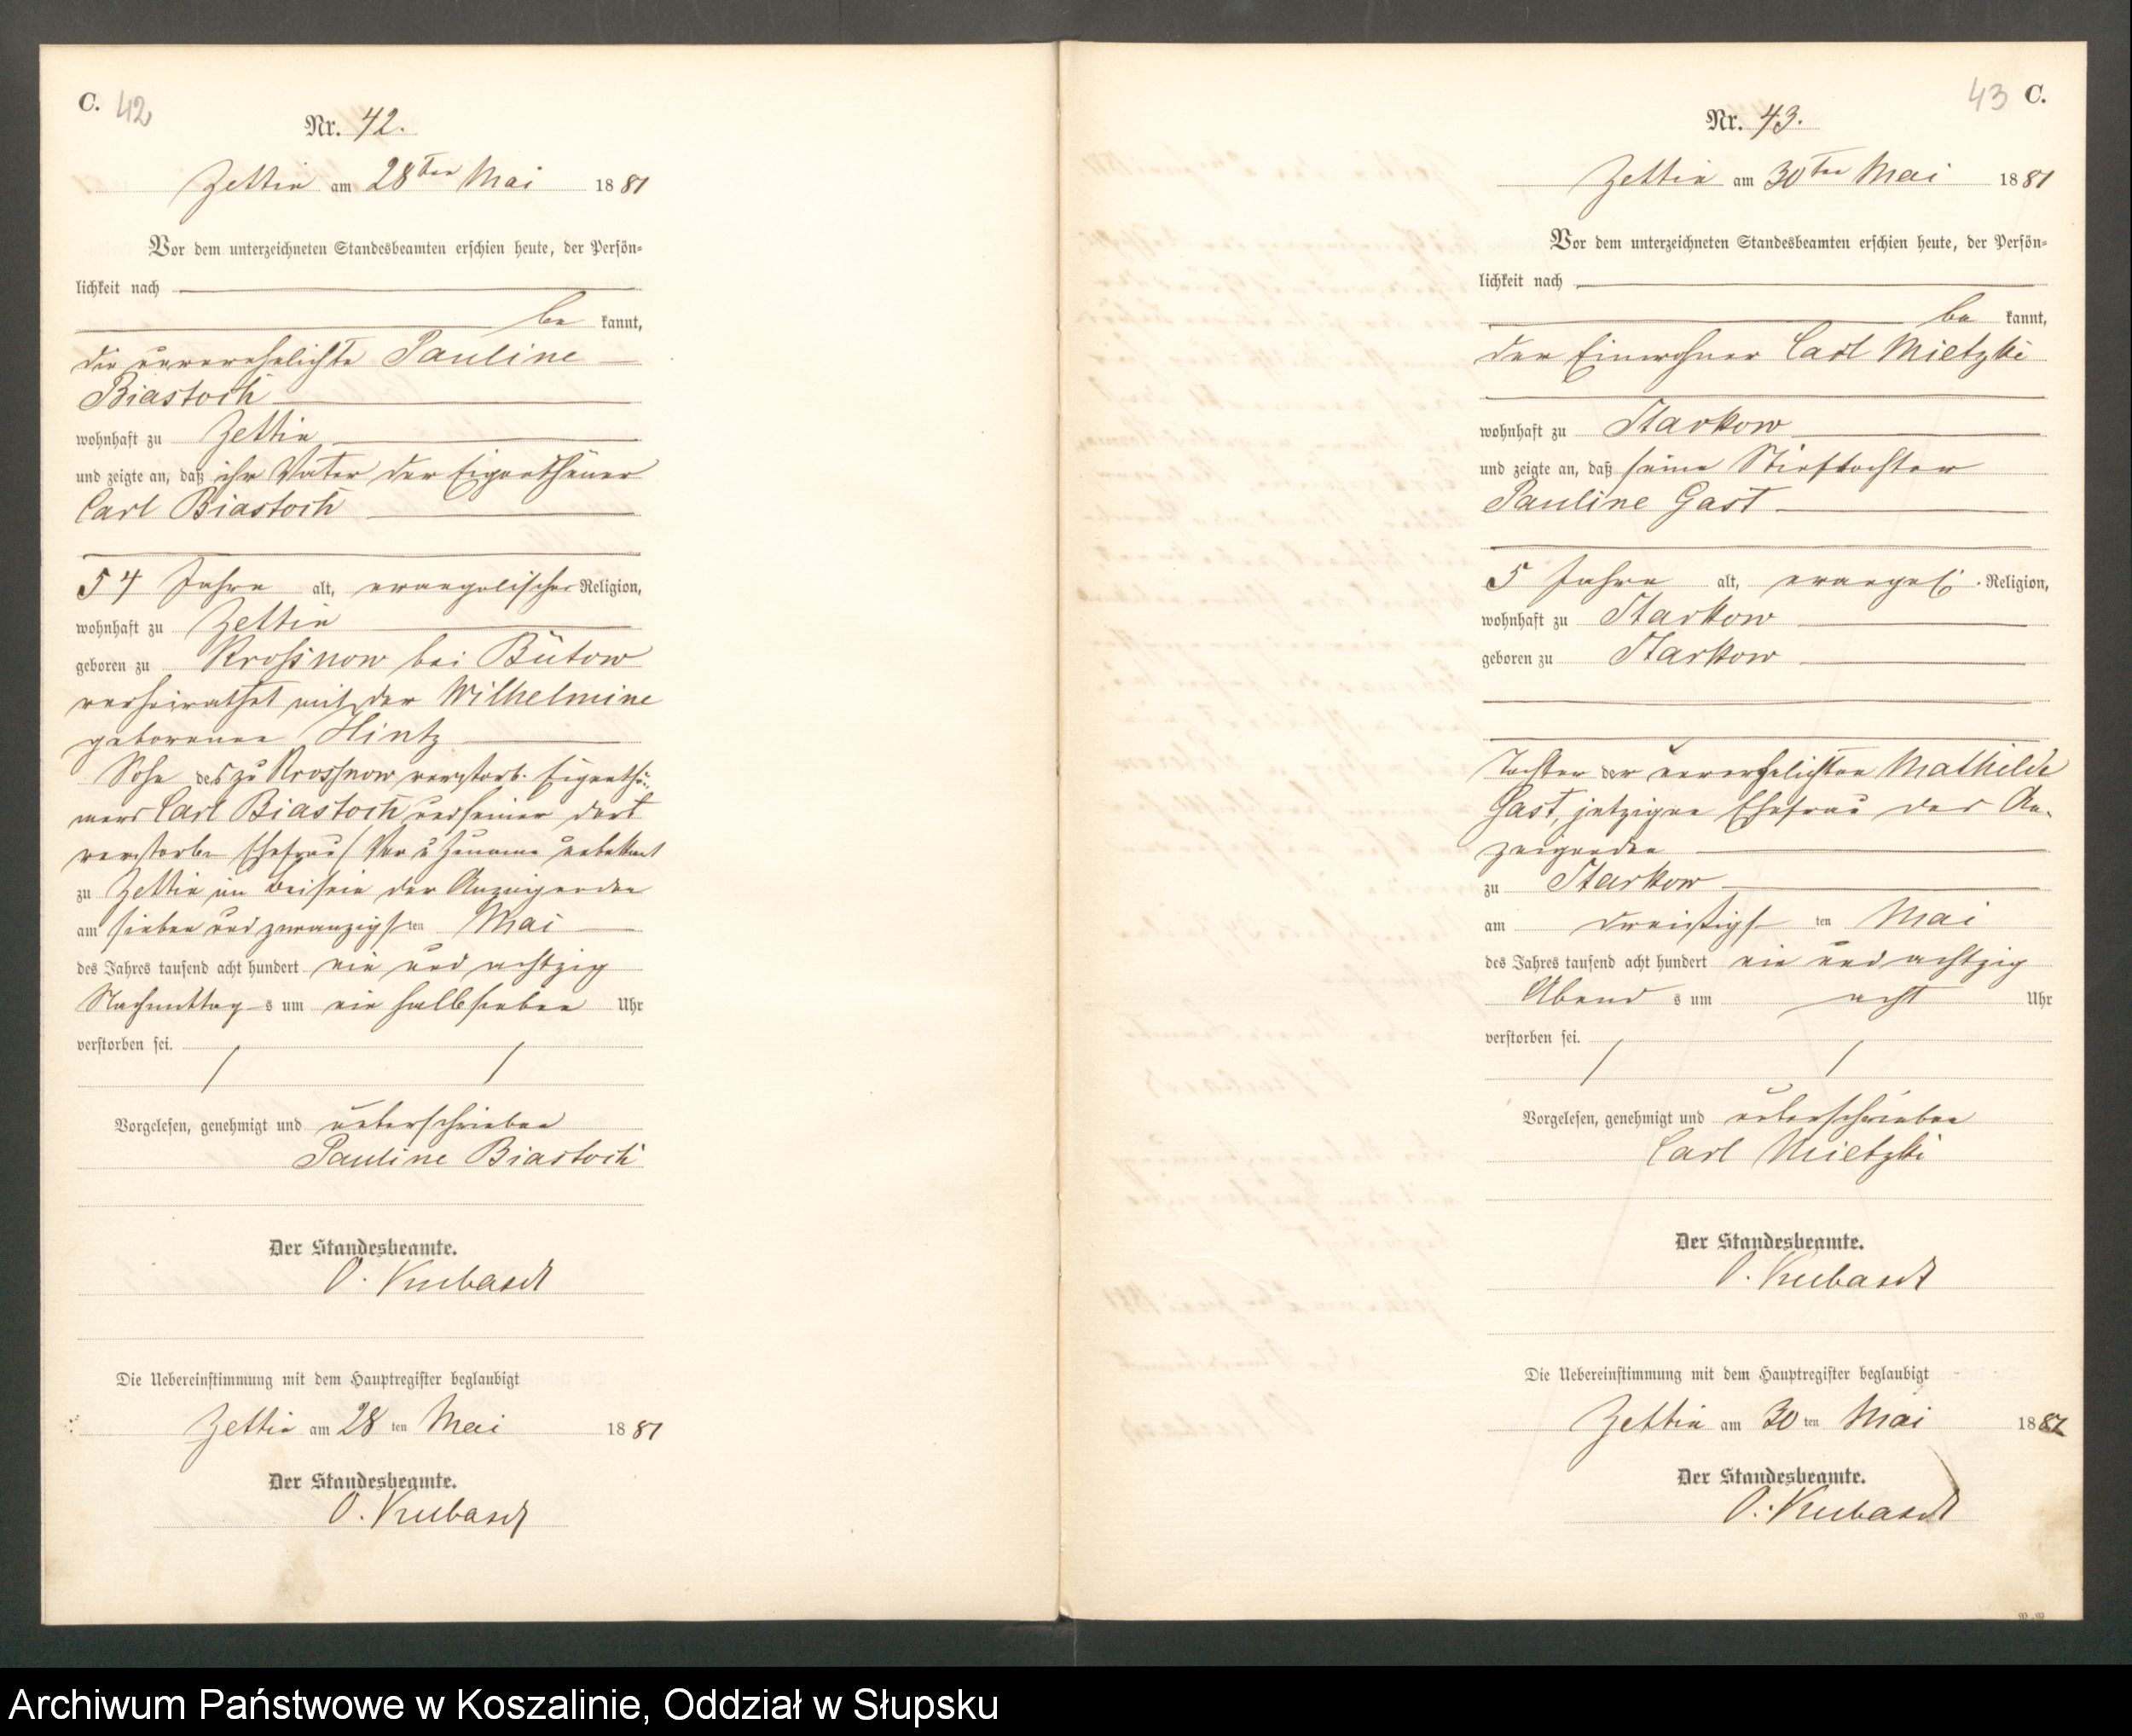 C. 42
Nr. 42.
Zettin am 28ten Mai 1881
Vor dem unterzeichneten Standesbeamten erschien heute, der Persön=
lichkeit nach
be kannt,
die unverehelichte Pauline
Biastoch
wohnhaft zu Zettin
und zeigte an, daß ihr Vater der Eigenthümer
Carl Biastoch
54 Jahre alt, evangelischer Religion,
wohnhaft zu Zettin
geboren zu Krossnow bei Bütow
verheirathet mit der Wilhelmine
geborenen Hintz
Sohn des zu Krossnow verstorb. Eigenthü=
mers Carl Biastoch und seiner dort
verstorben Ehefrau (Vor u Zuname unbekant
zu Zettin im Beisein der Anzeigenden
am sieben und zwanzigsten Mai
des Jahres tausend acht hundert ein und achtzig
Nachmittag s um ein halb sieben Uhr
verstorben sei.
Vorgelesen, genehmigt und unterschrieben
Pauline Biastoch
Der Standesbeamte.
O. Kubasch
Die Uebereinstimmung mit dem Hauptregister beglaubigt
Zettin am 28 ten Mai 1881
Der Standesbeamte.
O. Kubasch
43 C.
Nr. 43.
Zettin am 30ten Mai 1881
Vor dem unterzeichneten Standesbeamten erschien heute, der Persön=
lichkeit nach
be kannt,
der Einwohner Carl Mietzki
wohnhaft zu Starkow
und zeigte an, daß seine Stieftochter
Pauline Gast
5 Jahre alt, evangel. Religion,
wohnhaft zu Starkow
geboren zu Starkow
Tochter der unverehelichten Mathilde
Gast, jetzigen Ehefrau des An=
zeigenden
zu Starkow
am dreißigs ten Mai
des Jahres tausend acht hundert ein und achtzig
Abend s um acht Uhr
verstorben sei.
Vorgelesen, genehmigt und unterschrieben
Carl Mietzki
Der Standesbeamte.
O. Kubasch
Die Uebereinstimmung mit dem Hauptregister beglaubigt
Zettin am 30 ten Mai 1881
Der Standesbeamte.
O. Kubasch
Archiwum Państwowe w Koszalinie, Oddział w Słupsku